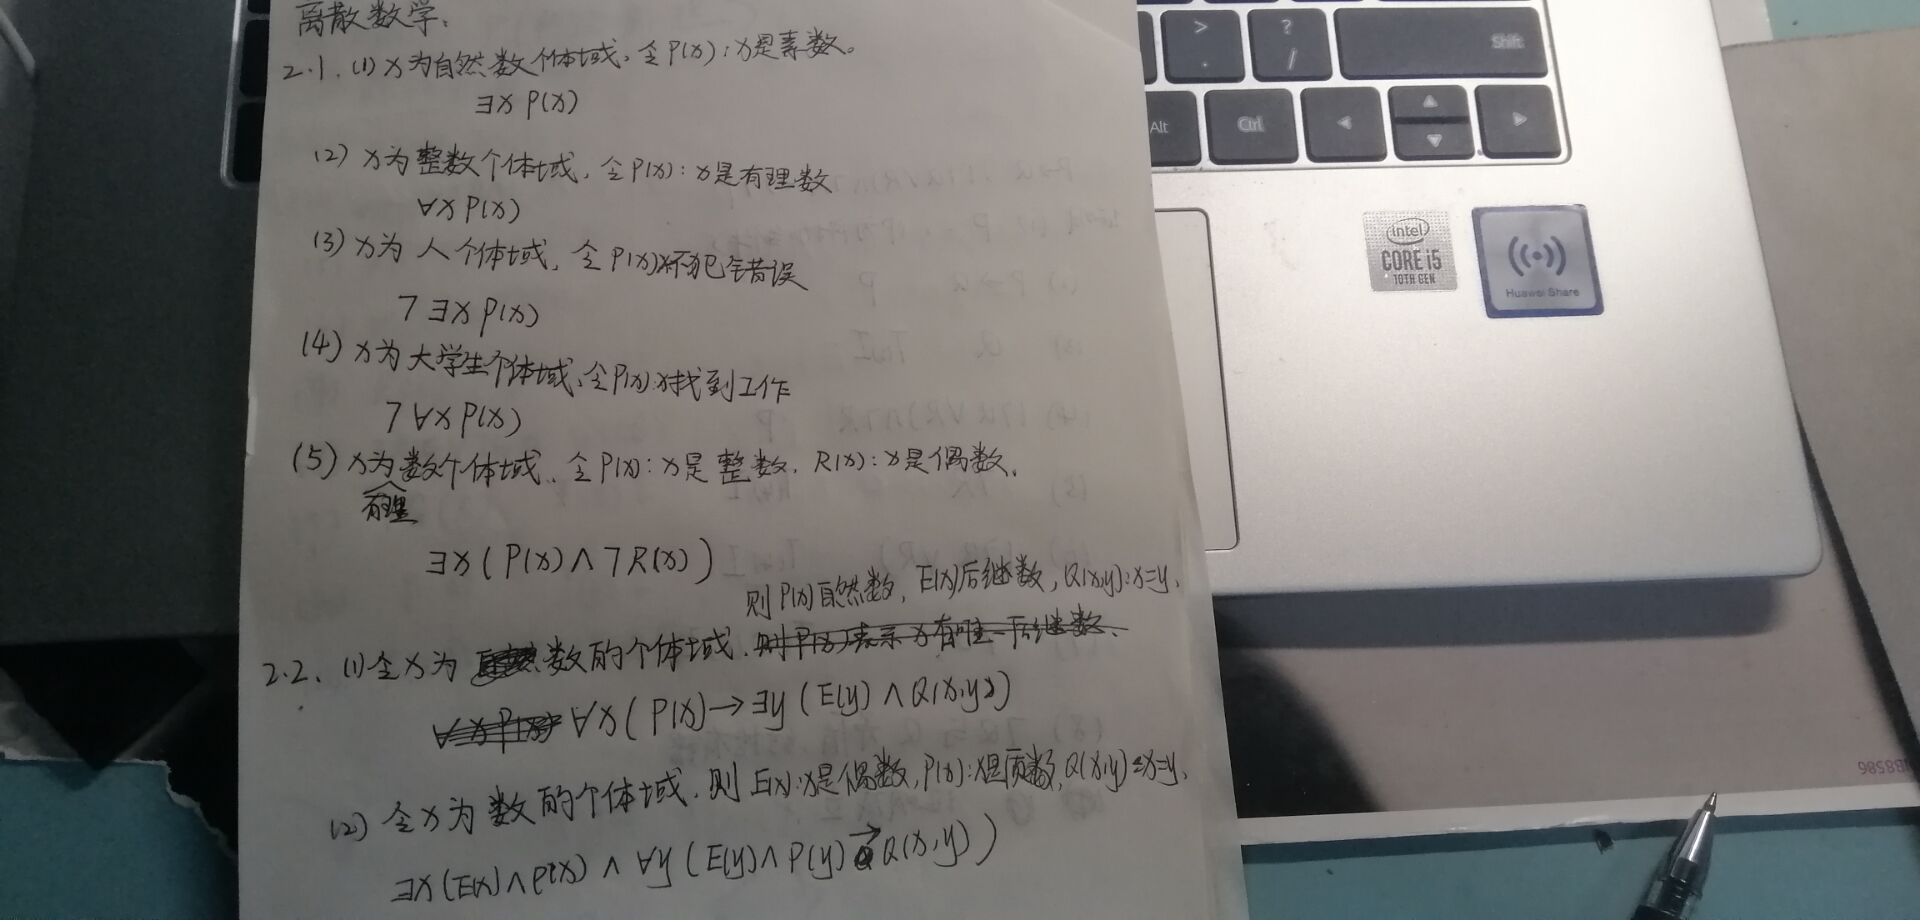 离散数学.
2.1. (1) x为自然数个体域, 令P(x): x是素数。
∃x P(x)
(2) x为整数个体域, 令P(x): x是有理数
∀x P(x)
(3) x为 人个体域, 令P(x) 不犯错误
¬∃x P(x)
(4) x为大学生个体域, 令P(x): x找到工作
¬∀x P(x)
(5) x为数个体域, 令P(x): x是整数, R(x): x是偶数.
有理
∃x(P(x)∧¬R(x))
则P(x)自然数, E(x)后继数, Q(x,y): x=y.
2.2. (1)令x为 数的个体域. 则P(x)表示x有唯一后继数.
∀x P(x) ∀x(P(x)→∃y(E(y)∧Q(x,y))
(2) 令x为数的个体域. 则E(x): x是偶数, P(x): x是质数, Q(x,y): x=y.
∃x(E(x)∧P(x)∧∀y(E(y)∧P(y)→Q(x,y))
> .
? /
Shift
Alt
Ctrl
intel
CORE i5
10TH GEN
Huawei Share